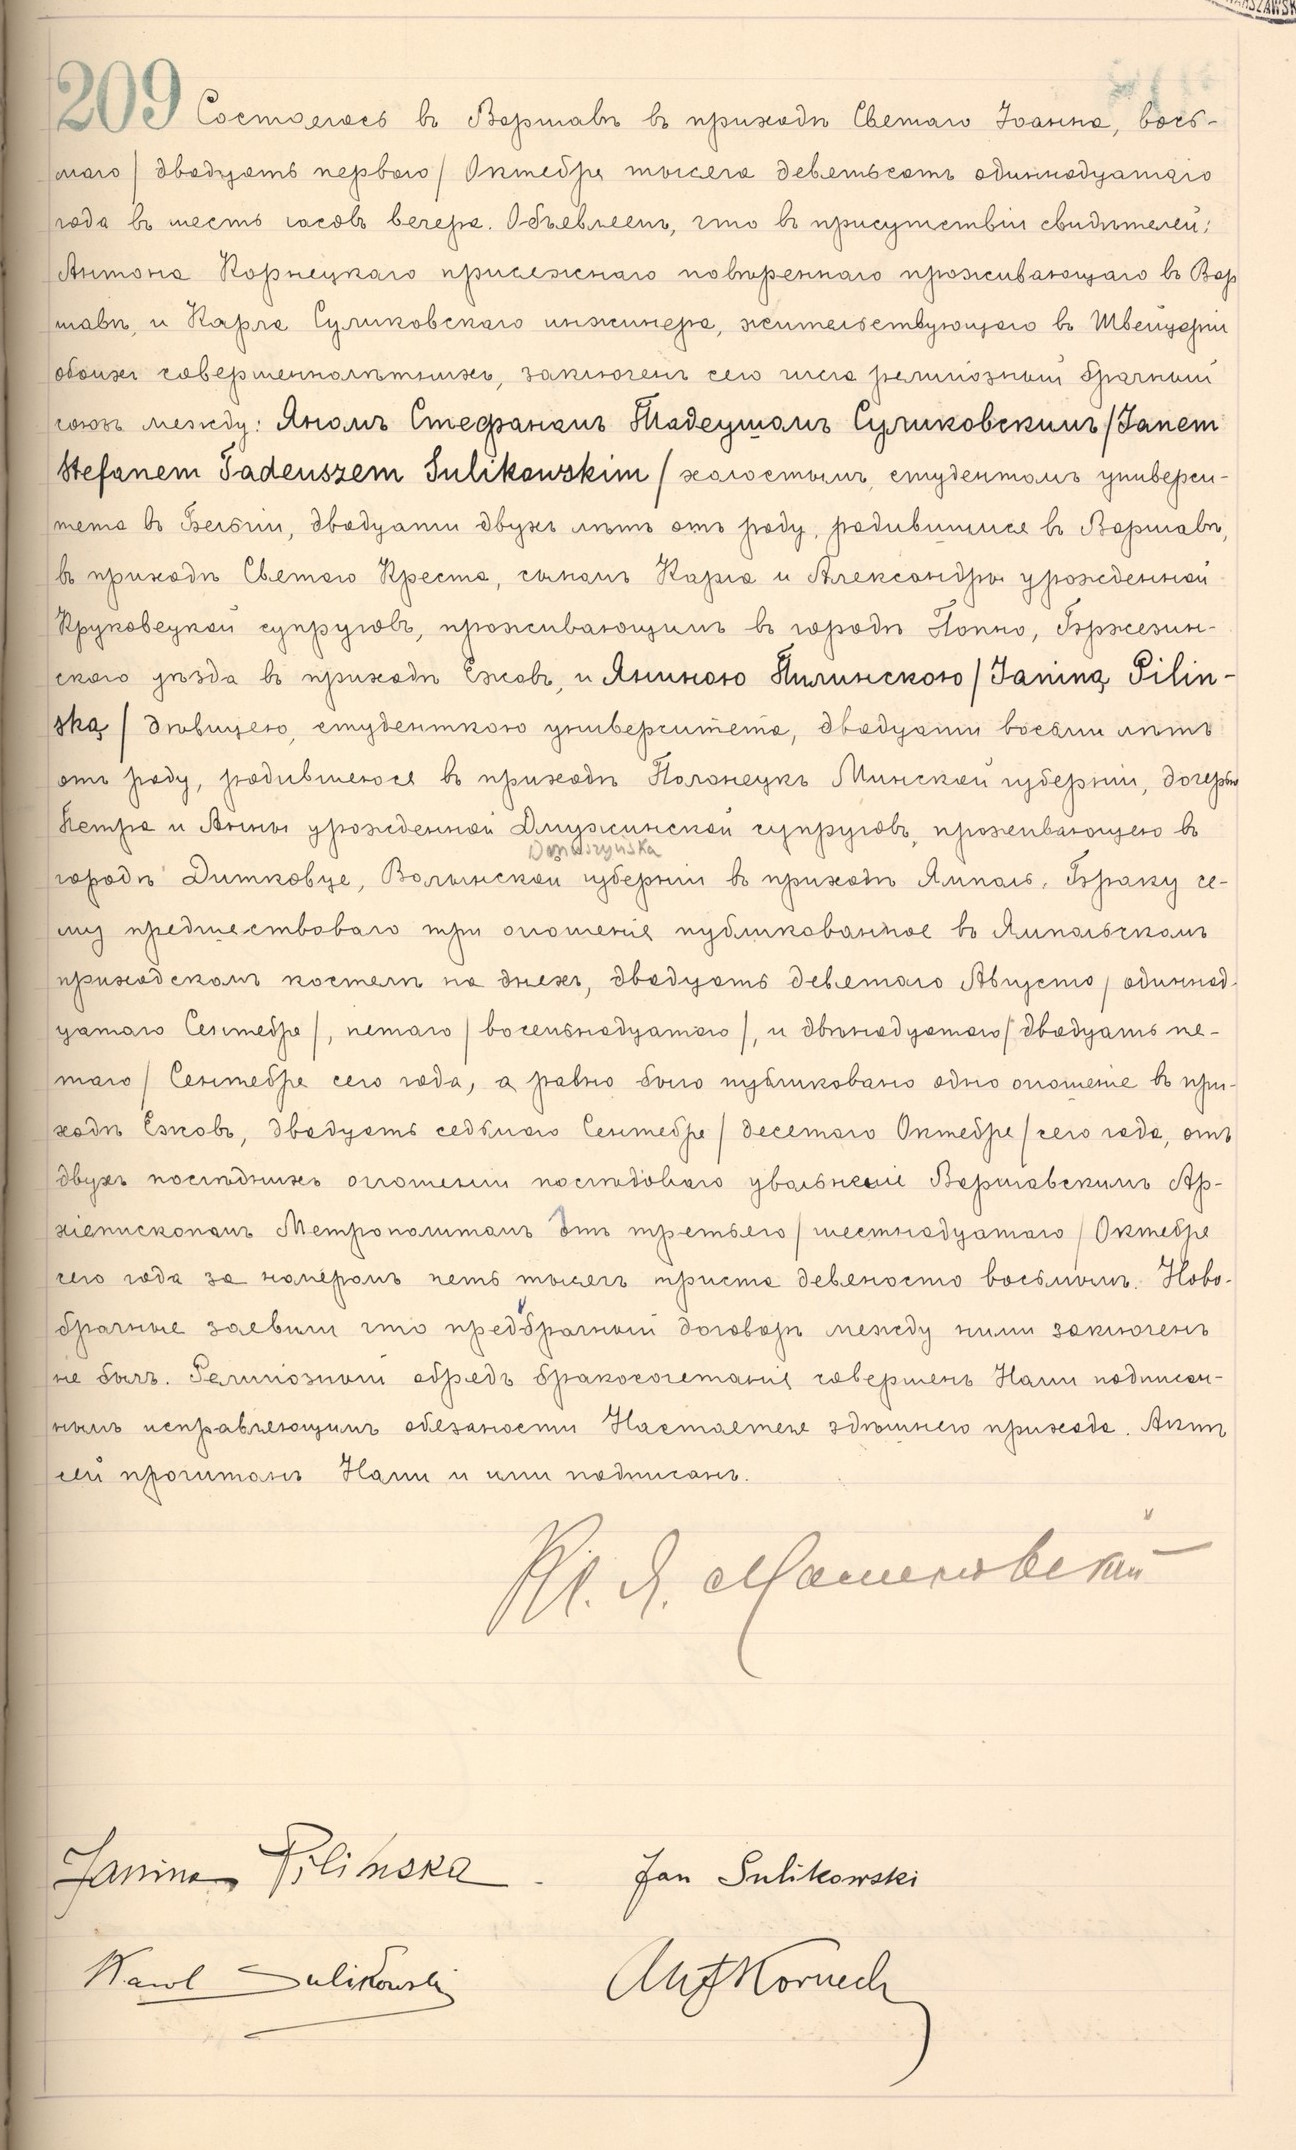 209 Состоялось въ Варшавѣ въ приходѣ Святаго Іоанна, вось-
маго / двадцать перваго / Октября тысяча девятьсотъ одиннадцатаго
года въ шесть часовъ вечера. Объявляемъ, что въ присутствіи свидѣтелей:
Антона Корнецкаго присяжнаго повѣреннаго проживающаго въ Вар
шавѣ, и Карла Суликовскаго инженера, жительствующаго въ Швейцаріи
обоихъ совершеннолѣтнихъ, заключенъ сего числа религіозный брачный
союзъ между: Яномъ Стефаномъ Тадеушомъ Суликовскимъ / Janem
Stefanem Tadeuszem Sulikowskim / холостымъ, студентомъ универси-
тета въ Бельгіи, двадцати двухъ лѣтъ отъ роду, родившимся въ Варшавѣ,
въ приходѣ Святаго Креста, сыномъ Карла и Александры урожденной
Круковецкой супруговъ, проживающимъ въ городѣ Попно, Бржезин-
скаго уѣзда въ приходѣ Ежовъ, и Яниною Пилинскою / Janiną Pilin-
ską / дѣвицею, студенткою университета, двадцати восьми лѣтъ
отъ роду, родившеюся въ приходѣ Полонецкъ Минской губерніи, дочерью
Петра и Анны урожденной Дмужинской супруговъ, проживающею въ
Dmuszyńska
городѣ Дитковце, Волынской губерніи въ приходѣ Ямполь. Браку се-
му предшествовало три оглашенія публикованное въ Ямпольскомъ
приходскомъ костелѣ на дняхъ, двадцать девятаго Августа / одиннад-
цатаго Сентября /, пятаго / восемьнадцатаго /, и двѣнадцатаго / двадцать пя-
таго / Сентября сего года, а равно было публиковано одно оглашеніе въ при-
ходѣ Ежовъ, двадцать седьмаго Сентября / десятаго Октября / сего года, отъ
двухъ послѣднихъ оглашеніи послѣдовало увольненіе Варшавскимъ Ар-
хіепископомъ Метрополитомъ отъ третьяго / шестнадцатаго / Октября
сего года за номеромъ пять тысячъ триста девяносто восьмымъ. Ново-
брачные заявили что предбрачный договоръ между ними заключенъ
не былъ. Религіозный обрядъ бракосочетанія совершенъ Нами подписан-
нымъ исправляющимъ обязаности Настоятеля здѣшняго прихода. Актъ
сей прочитанъ Нами и ими подписанъ.
Janina Pilińska. Jan Sulikowski
Karol Sulikowski Ant Kornecki